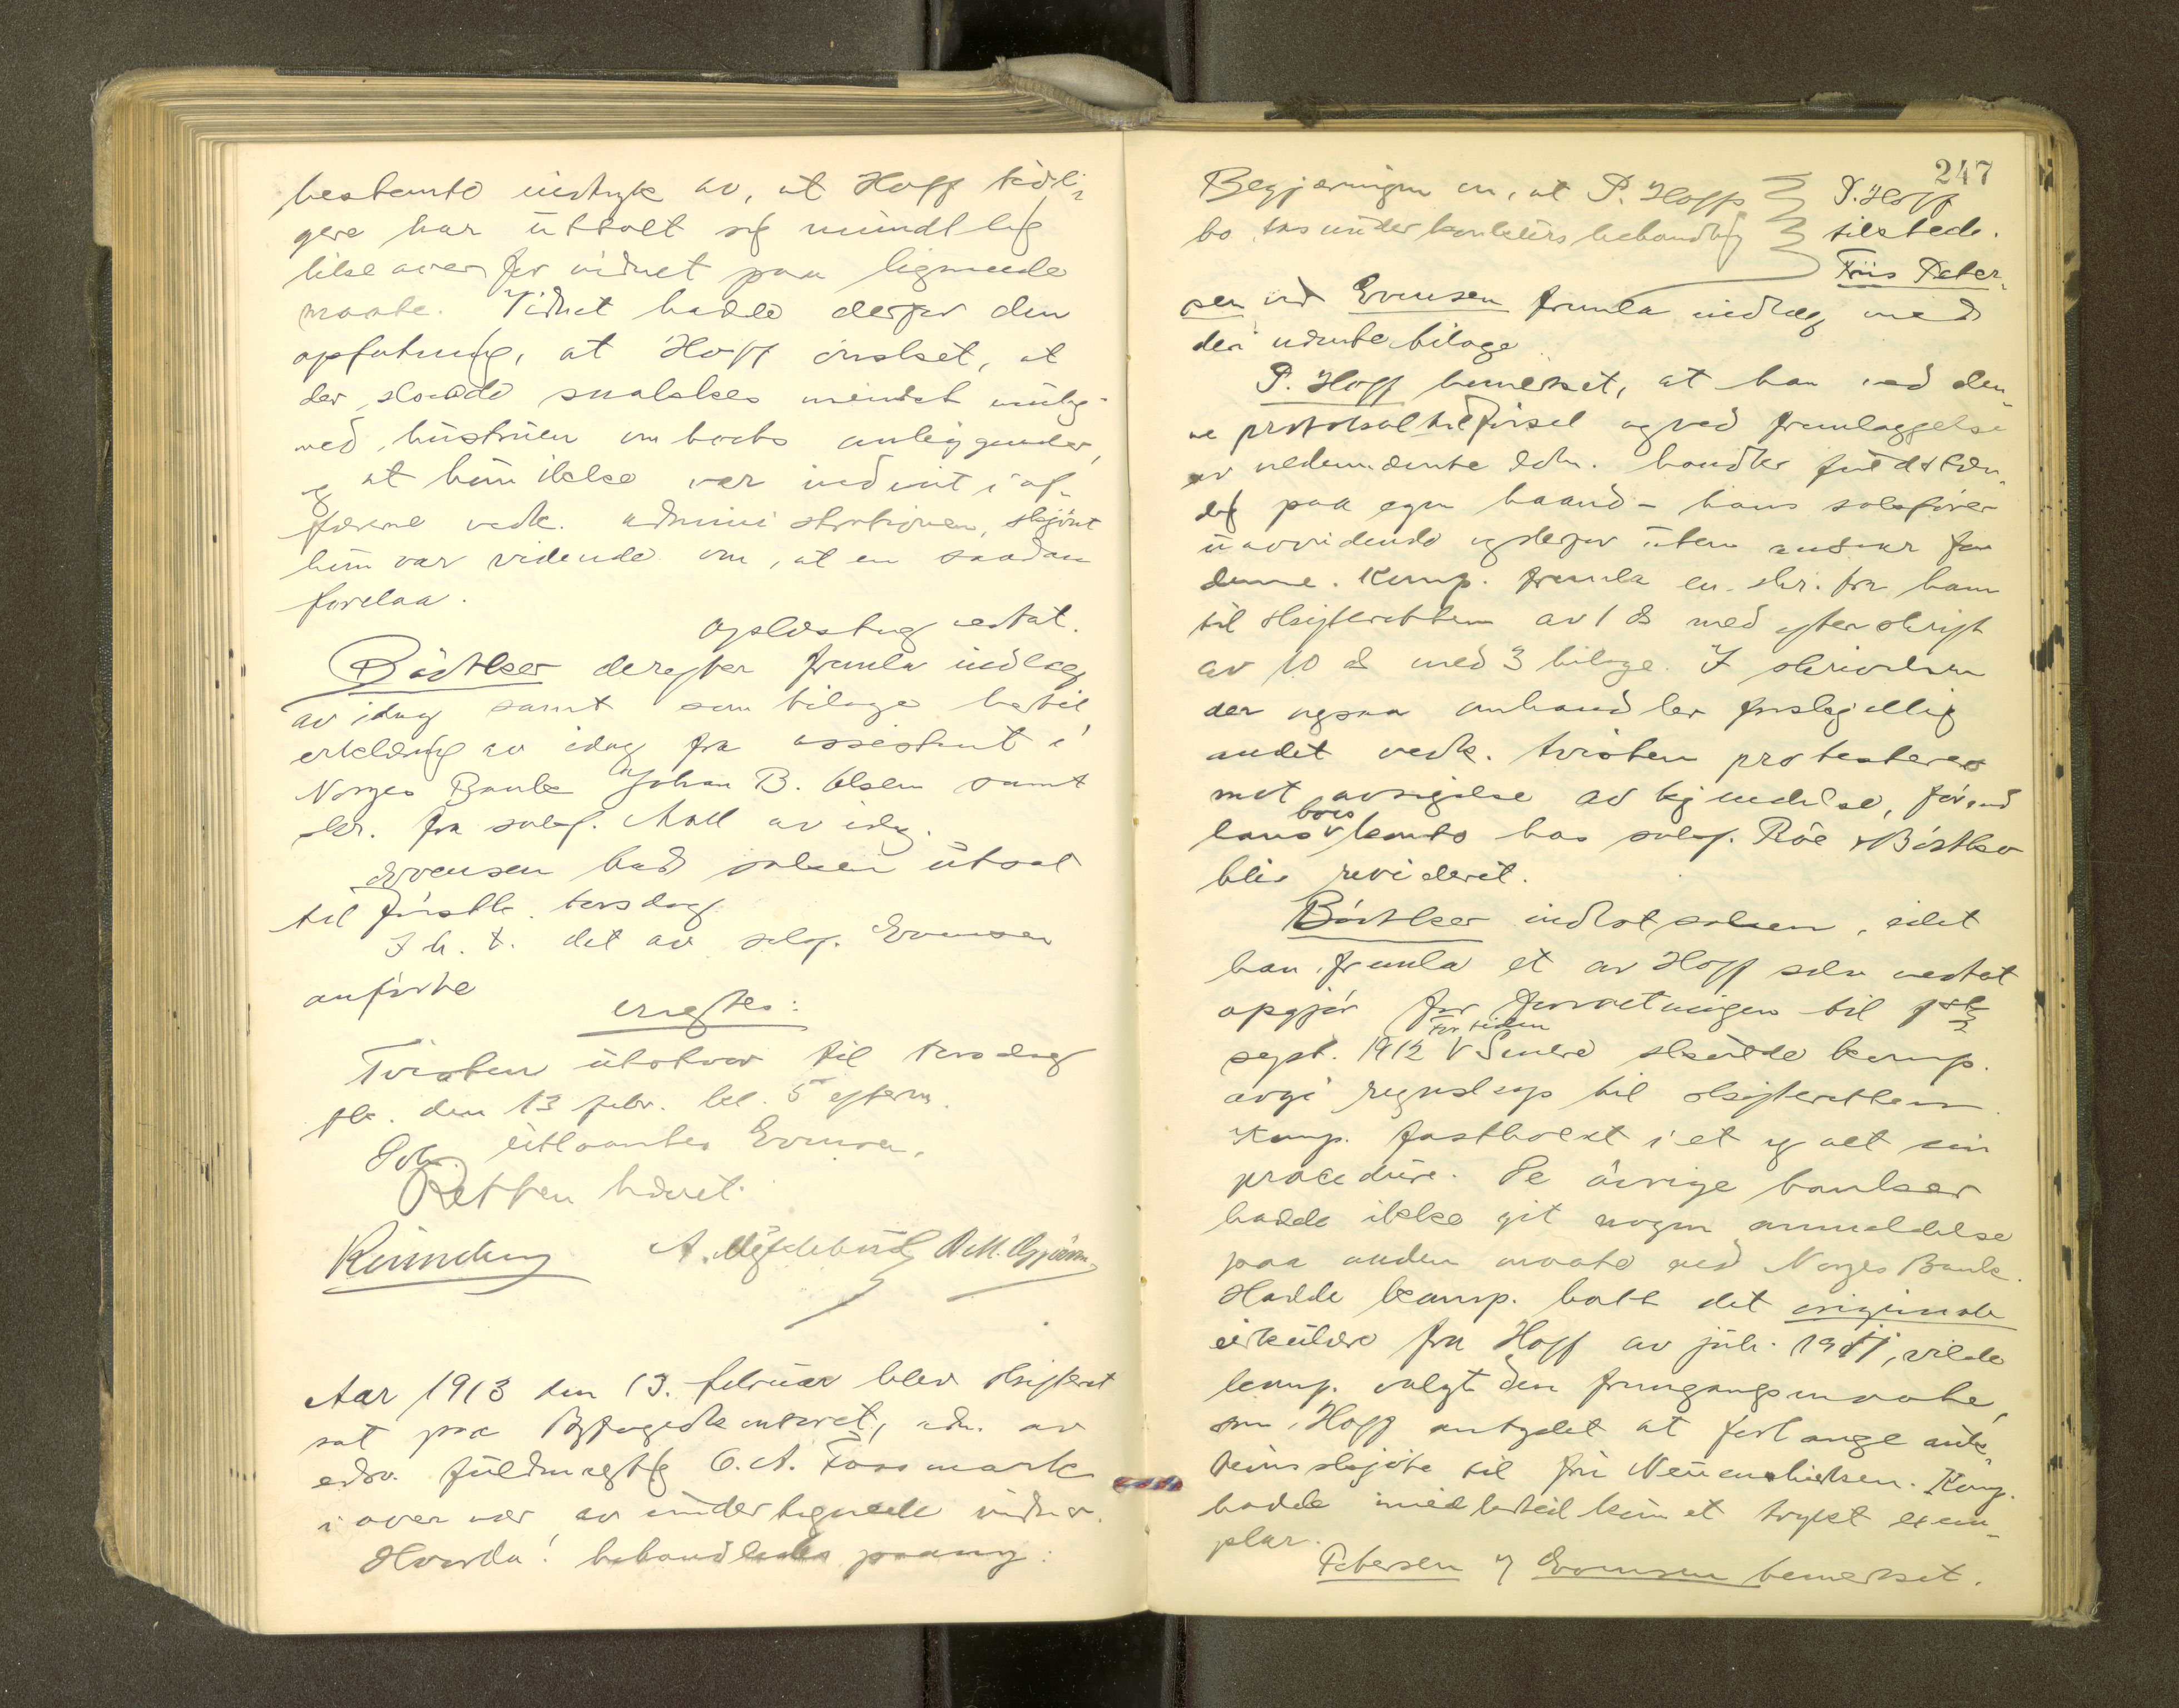 bestemte indtryk av, at Hoff tidli-
gere har uttalt sig mundtlig
like over for vidnet paa lignende
maate. Vidnet hadde derfor den
opfatning, at Hoff ønsket, at
der skulde snakkes mindst mulig
med hustruen om boets anliggender,
og at hun ikke var indviet i af-
færerne vedk. administrationen, skjønt
hun var vidende om, at en saadan
forelaa.
Oplæstng vedtat.
Bödtker derefter fremla indlæg
av idag samt som bilage hertil
erklæring av idag fra assistent i
Norges Bank Johan B. Olsen samt
skr. fra sakf. Moll av idag.
Evensen bad saken utsat
til førstk. torsdag.
I h. t. det av sakf. Evensen
anførte
eragtes:
Tvisten utstaar til torsdag
fk. den 13 febr. kl. 5 efterm.
Dok. utlaantes Evensen.
Retten hævet.
A.
Aar 1913 den 13. februar blev skifteret
sat paa Byfogedkontoret, adm. av
edsv. fuldmægtig O. A. Fossmark
i overvær av undertegnede vidner.
Hvorda! behandledes paany:
247
Begjæringen om, at P. Hoffs
bo tas under konkursbehandling
P. Hoff
tilstede.
Friis Peter-
sen ved Evensen fremla indlæg med
deri nævnte bilage.
P. Hoff bemerket, at han ved den-
ne protokoltilførsel og ved fremlæggelse
av nedennævnte dok. handler fuldstæn-
dig paa egen haand – hans sakfører
uavvidende og derfor uten ansvar for
denne. Komp. fremla en skr. fra ham
til skifteretten av 1 ds med efterskrift
av 10 ds med 3 bilage. I skrivelsen
der ogsaa omhandler forskjellig
andet vedk. tvisten protesteres
mot avsigelse av kjendelse, førend
hans boes konto hos sakf. Roe & Bödtker
blir revideret.
Bödtker indlot saken, idet
han fremla et av Hoff selv vedtat
opgjør for forvaltningen til 1ste
sept. 1912. For tiden senere skulde komp.
avgi regnskap til skifteretten.
Komp. fastholdt i et og alt sin
procedure. De øvrige banker
hadde ikke git nogen anmeldelse
paa anden maate end Norges Bank.
Hadde komp. hatt det originale
cirkulære fra Hoff av juli 1911, vilde
komp. valgt den fremgangsmaate,
som Hoff antydet at forlange auk-
tionsskjøte til fru Neuenkirchen. Komp.
hadde imidlertid kun et trykt exem-
plar.
Petersen og Evensen bemerket.